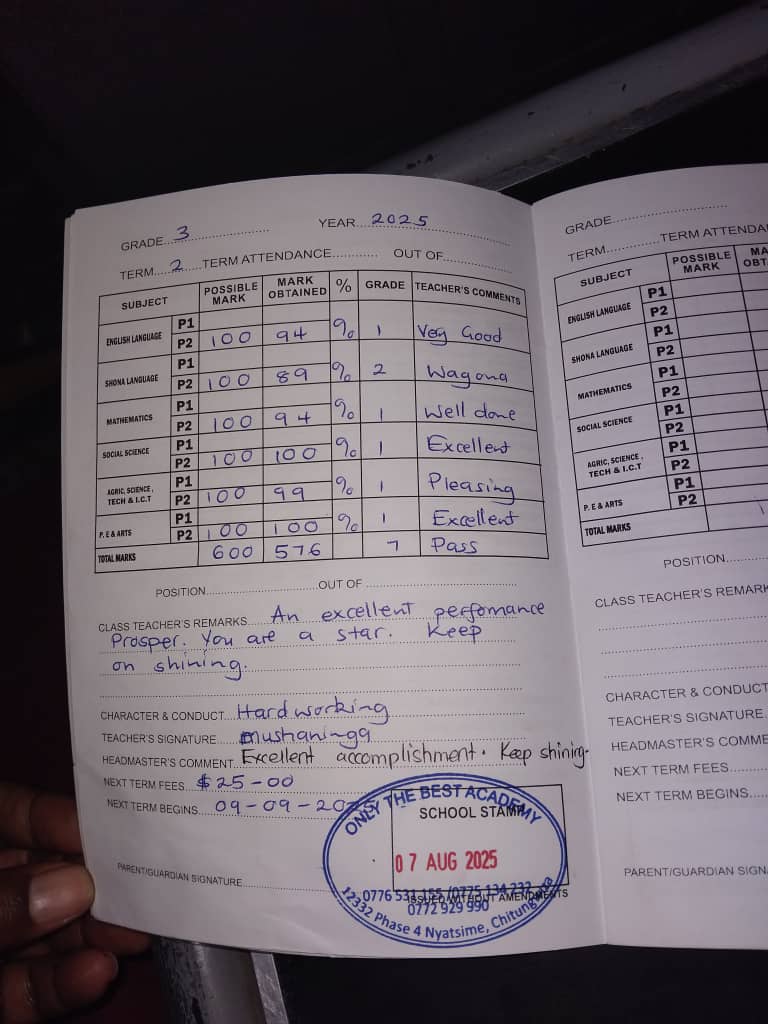 GRADE...3............ YEAR...2025............
TERM...2...TERM ATTENDANCE............ OUT OF............
SUBJECT POSSIBLE MARK MARK OBTAINED % GRADE TEACHER'S COMMENTS
ENGLISH LANGUAGE P1
P2 100 94 % 1 Very Good
SHONA LANGUAGE P1
P2 100 89 % 2 Wagona
MATHEMATICS P1
P2 100 94 % 1 Well done
SOCIAL SCIENCE P1
P2 100 100 % 1 Excellent
AGRIC, SCIENCE, TECH & I.C.T P1
P2 100 99 % 1 Pleasing
P. E & ARTS P1
P2 100 100 % 1 Excellent
TOTAL MARKS 600 576 7 Pass
POSITION............OUT OF............
CLASS TEACHER'S REMARKS An excellent perfomance
Prosper. You are a star. Keep
on shining.
CHARACTER & CONDUCT Hardworking
TEACHER'S SIGNATURE mushaninga
HEADMASTER'S COMMENT Excellent accomplishment. Keep shining.
NEXT TERM FEES $25-00
NEXT TERM BEGINS 09-09-2025
PARENT/GUARDIAN SIGNATURE............
ONLY THE BEST ACADEMY
SCHOOL STAMP
07 AUG 2025
0776 531 155 /0775 134 232
ISSUED WITHOUT AMENDMENTS
0772 929 990
12332 Phase 4 Nyatsime, Chitungwiza
GRADE............
TERM............TERM ATTENDA
SUBJECT POSSIBLE MARK MA OBT
ENGLISH LANGUAGE P1
P2
SHONA LANGUAGE P1
P2
MATHEMATICS P1
P2
SOCIAL SCIENCE P1
P2
AGRIC, SCIENCE, TECH & I.C.T P1
P2
P. E & ARTS P1
P2
TOTAL MARKS
POSITION............
CLASS TEACHER'S REMARK
CHARACTER & CONDUCT
TEACHER'S SIGNATURE
HEADMASTER'S COMME
NEXT TERM FEES............
NEXT TERM BEGINS............
PARENT/GUARDIAN SIGNA